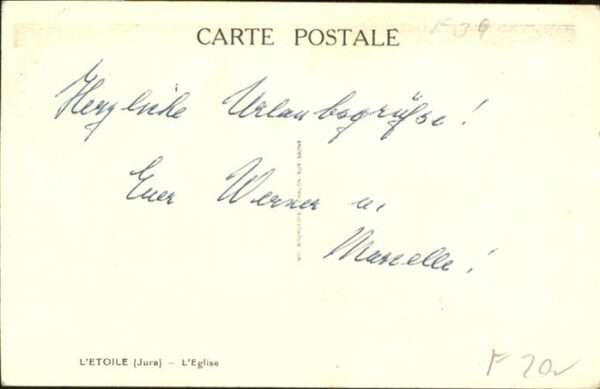 F 39
CARTE POSTALE
Herzliche Urlaubsgrüße!
Euer Werner u.
Marcelle!
L'ETOILE (Jura) – L'Eglise